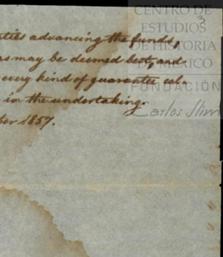 CENTRO DE
ESTUDIOS
DE HISTORIA
DE MEXICO
FUNDACIÓN
Carlos Slim
3
ties advancing the funds,
as may be deemed best, and
every kind of guarantee cal-
in the undertaking.
ber 1857.